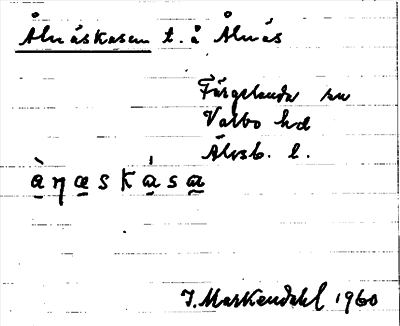 Ålnäskasen t. å Ålnäs
Färgelanda sn
Valbo hd
Älvsb. l.
J. Markendahl 1960